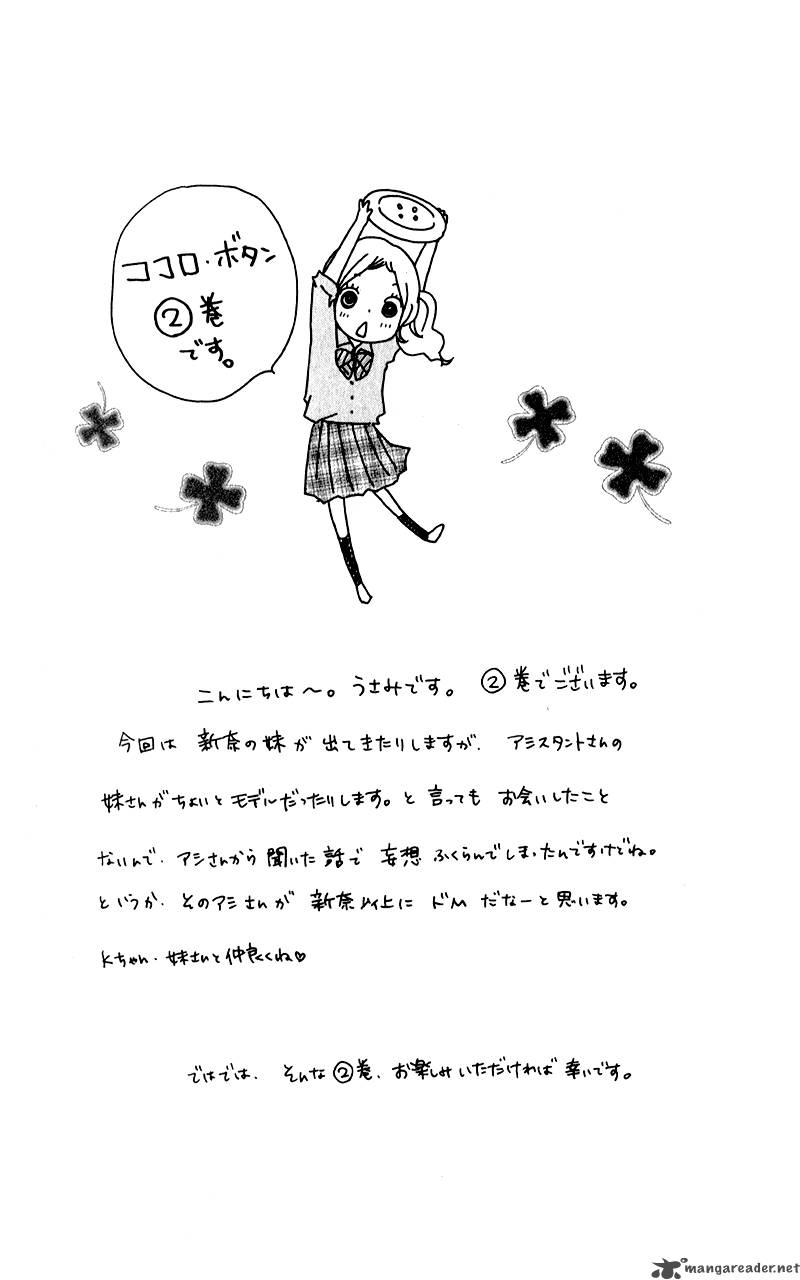 ココロ・ボタン
②巻
です。
こんにちは〜。うさみです。 ②巻でございます。
今回は 新奈の妹が 出てきたりしますが、 アシスタントさんの
妹さんがちょいとモデルだったりします。と 言っても お会いしたこと
ないんで、アシさんから 聞いた 話で 妄想 ふくらんでしまったんですけどね。
というか、そのアシさんが 新奈以上に ドM だなーと思います。
Kちゃん、妹さんと仲良くね♡
ではでは、 そんな②巻、お楽しみいただければ 幸いです。
mangareader.net